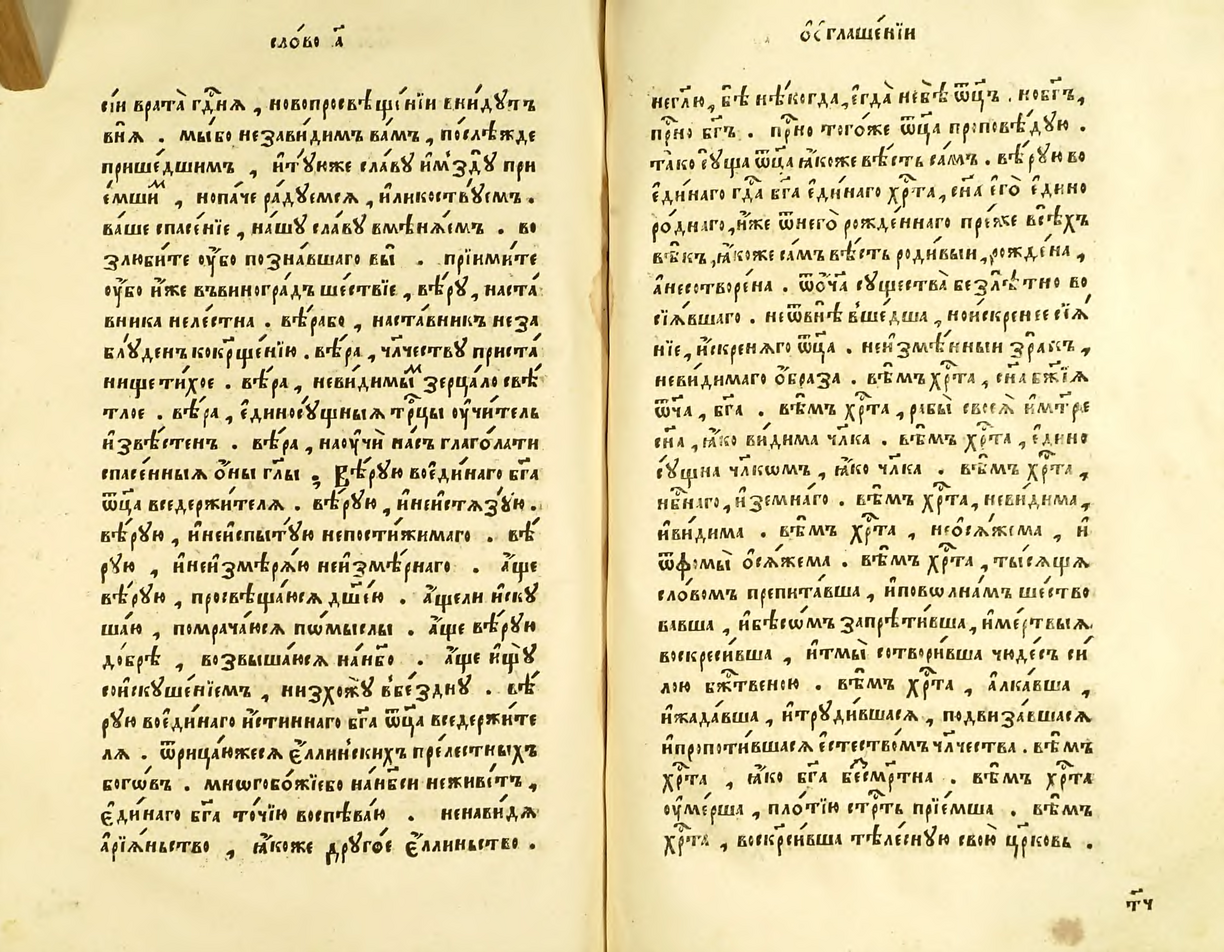 сло́во а҃
сїи врата̀ гдⷭ҇нѧ , новопросвѣще́нїи внидꙋтъ
внѧ̀ . мы́бо незави́димъ ва́мъ , послѣ́жде
прише́дшимъ , и҆тꙋ́юже сла́вꙋ и҆мздꙋ̀ при
е́мшиⷨ , нопа́че ра́дꙋемсѧ , и҆ликоствꙋ́емъ .
ва́ше спасе́нїе , на́шꙋ сла́вꙋ вмѣнѧ́емъ . во
злюби́те ᲂу҆́бо позна́вшаго вы̀ . прїими́те
ᲂу҆́бо и҆́же въвиногра́дъ ше́ствїе , вѣ́рꙋ , наста́
вника неле́стна . вѣ́рабо , наста́вникъ неза
блꙋ́денъ кокрⷭ҇ще́нїю . вѣ́ра , чл҃честву приста́
нище ти́хое . вѣ́ра , неви́димыⷨ зерца́ло свѣ́
тлое . вѣ́ра , є҆диносꙋ́щныѧ трⷪ҇цы ᲂу҆чи́тель
и҆звѣ́стенъ . вѣ́ра , наᲂу҆чѝ на́съ глаго́лати
спасе́нныѧ ѻ҆́ны гл҃ы ; вѣ́рꙋю воє҆ди́наго бг҃а
ѿц҃а вседержи́телѧ . вѣ́рꙋю , и҆неистѧзꙋ́ю .
вѣ́рꙋю , и҆неиспы́тꙋю непостижи́маго . вѣ́
рꙋю , и҆неи҆змѣрѧ́ю неи҆змѣ́рнаго . а҆́ще
вѣ́рꙋю , просвѣща́юсѧ дш҃е́ю . а҆́щели и҆скꙋ
ша́ю , помрача́юсѧ по́мыслы . а҆́ще вѣ́рꙋю
до́брѣ , возвыша́юсѧ нан҃бо . а҆́ще и҆щꙋ̀
соискꙋше́нїемъ , низхожꙋ̀ вбе́зднꙋ . вѣ́
рꙋю воє҆ди́наго и҆́стиннаго бг҃а ѿц҃а вседержи́те
лѧ . ѿрица́южесѧ є҆́ллинскихъ преле́стныхъ
бого́въ . многобо́жїебо нан҃бси неживе́тъ ,
є҆ди́наго бг҃а то́чїю воспѣва́ю . ненави́дѧ
а҆рїѧ́ньство , ꙗ҆́коже дрꙋго́е є҆́ллиньство .
ѻ҆сглаше́нїи
негл҃ю , бѣ̀ нѣ́когда , є҆гда̀ небѣ̀ ѿц҃ъ . нобг҃ъ ,
прⷭ҇но бг҃ъ . прⷭ҇но того́же ѿц҃а проповѣ́дꙋю .
та́ко сꙋ́ща ѿц҃а ꙗ҆́коже вѣ́сть са́мъ . вѣ́рꙋю во
є҆ди́наго гдⷭ҇а бг҃а є҆ди́наго хрⷭ҇та , сн҃а є҆го̀ є҆дино
ро́днаго , и҆́же ѿнего̀ рожде́ннаго пре́же всѣ́хъ
вѣ́къ , ꙗ҆́коже са́мъ вѣ́сть роди́выи , рожде́на ,
а҆несотворе́на . ѿѻ҆́ча сꙋщества̀ безлѣ́тно во
сїѧ́вшаго . неѿвнѣ̀ вше́дша , ноискренее сїѧ́
нїе , и҆́скренѧго ѿц҃а . неи҆змѣ́нныи зра́къ ,
неви́димаго ѻ҆́браза . вѣ́мъ хрⷭ҇та , сн҃а бж҃їѧ
ѿч҃а , бг҃а . вѣ́мъ хрⷭ҇та , рабы̀ своеѧ̀ и҆мт҃ре
сн҃а , ꙗ҆́ко ви́дима чл҃ка . вѣ́мъ хрⷭ҇та , є҆дино
сꙋ́щна чл҃кѡмъ , ꙗ҆́ко чл҃ка . вѣ́мъ хрⷭ҇та ,
нбⷭ҇наго , и҆земна́го . вѣ́мъ хрⷭ҇та , неви́дима ,
и҆ви́дима . вѣ́мъ хрⷭ҇та , неѻ҆сѧ́жема , и҆
ѿѳомы̀ ѻ҆сѧ́жема . вѣ́мъ хрⷭ҇та , ты́сѧщѧ
сло́вомъ препита́вша , и҆поволна́мъ ше́ство
вавша , и҆бѣсѡ́мъ запрѣти́вша , и҆ме́ртвыѧ
воскреси́вша , и҆тмы̀ сотвори́вша чюде́съ си́
лою бжⷭ҇твеною . вѣ́мъ хрⷭ҇та , а҆лка́вша ,
и҆жада́вша , и҆трꙋди́вшасѧ , подвиза́вшасѧ
и҆пропоти́вшасѧ є҆стество́мъ чл҃чества . вѣ́мъ
хрⷭ҇та , ꙗ҆́ко бг҃а бесме́ртна . вѣ́мъ хрⷭ҇та
ᲂу҆ме́рша , пло́тїю стрⷭ҇ть прїе́мша . вѣ́мъ
хрⷭ҇та , воскр҃си́вша тѣле́снꙋю свою̀ цр҃ковь .
тч҃